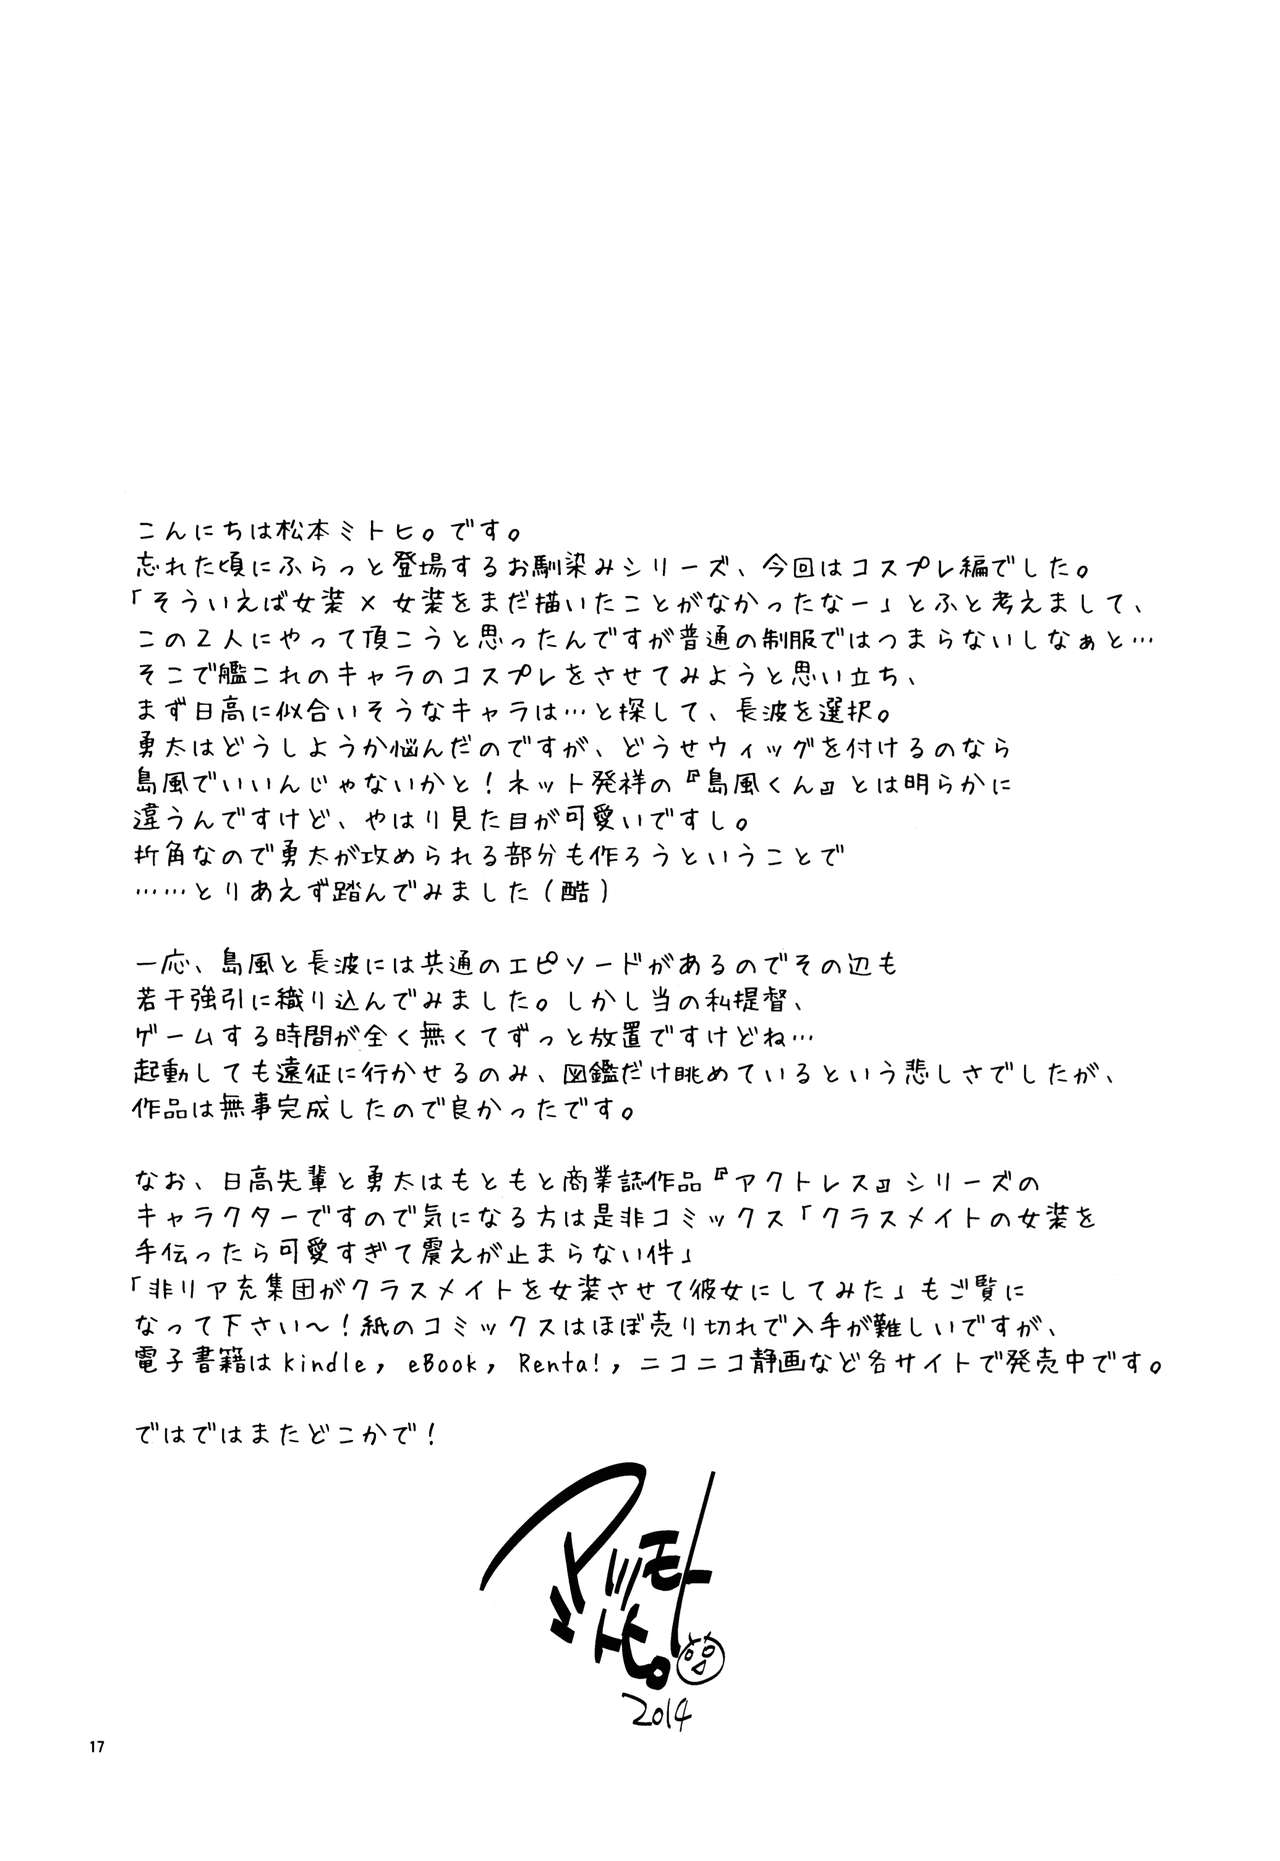 こんにちは松本ミトヒ。です。
忘れた頃にふらっと登場するお馴染みシリーズ、今回はコスプレ編でした。
「そういえば女装×女装をまだ描いたことがなかったなー」とふと考えまして、
この2人にやって頂こうと思ったんですが普通の制服ではつまらないしなぁと…
そこで艦これのキャラのコスプレをさせてみようと思い立ち、
まず日高に似合いそうなキャラは…と探して、長波を選択。
勇太はどうしようか悩んだのですが、どうせウィッグを付けるのなら
島風でいいんじゃないかと！ネット発祥の『島風くん』とは明らかに
違うんですけど、やはり見た目が可愛いですし。
折角なので勇太が攻められる部分も作ろうということで
……とりあえず踏んでみました（酷）
一応、島風と長波には共通のエピソードがあるのでその辺も
若干強引に織り込んでみました。しかし当の私提督、
ゲームする時間が全く無くてずっと放置ですけどね…
起動しても遠征に行かせるのみ、図鑑だけ眺めているという悲しさでしたが、
作品は無事完成したので良かったです。
なお、日高先輩と勇太はもともと商業誌作品『アクトレス』シリーズの
キャラクターですので気になる方は是非コミックス「クラスメイトの女装を
手伝ったら可愛すぎて震えが止まらない件」
「非リア充集団がクラスメイトを女装させて彼女にしてみた」もご覧に
なって下さい～！紙のコミックスはほぼ売り切れで入手が難しいですが、
電子書籍はkindle，eBook，Renta!，ニコニコ静画など各サイトで発売中です。
ではではまたどこかで！
マツモト
ミトヒ。
2014
17